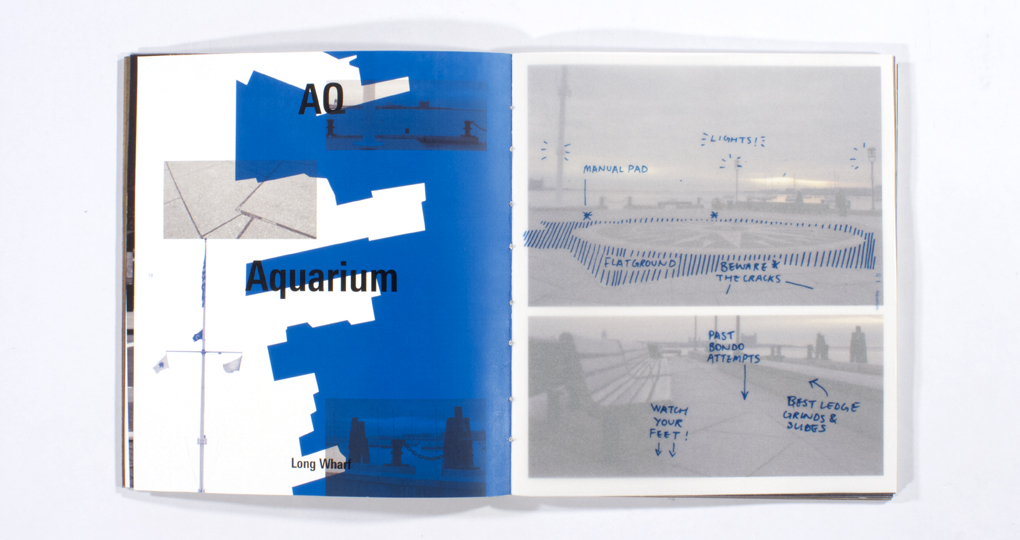 AQ
Aquarium
Long Wharf
LIGHTS!
MANUAL PAD
FLATGROUND
BEWARE
THE CRACKS
PAST
BONDO
ATTEMPTS
BEST LEDGE
GRINDS &
SLIDES
WATCH
YOUR
FEET!